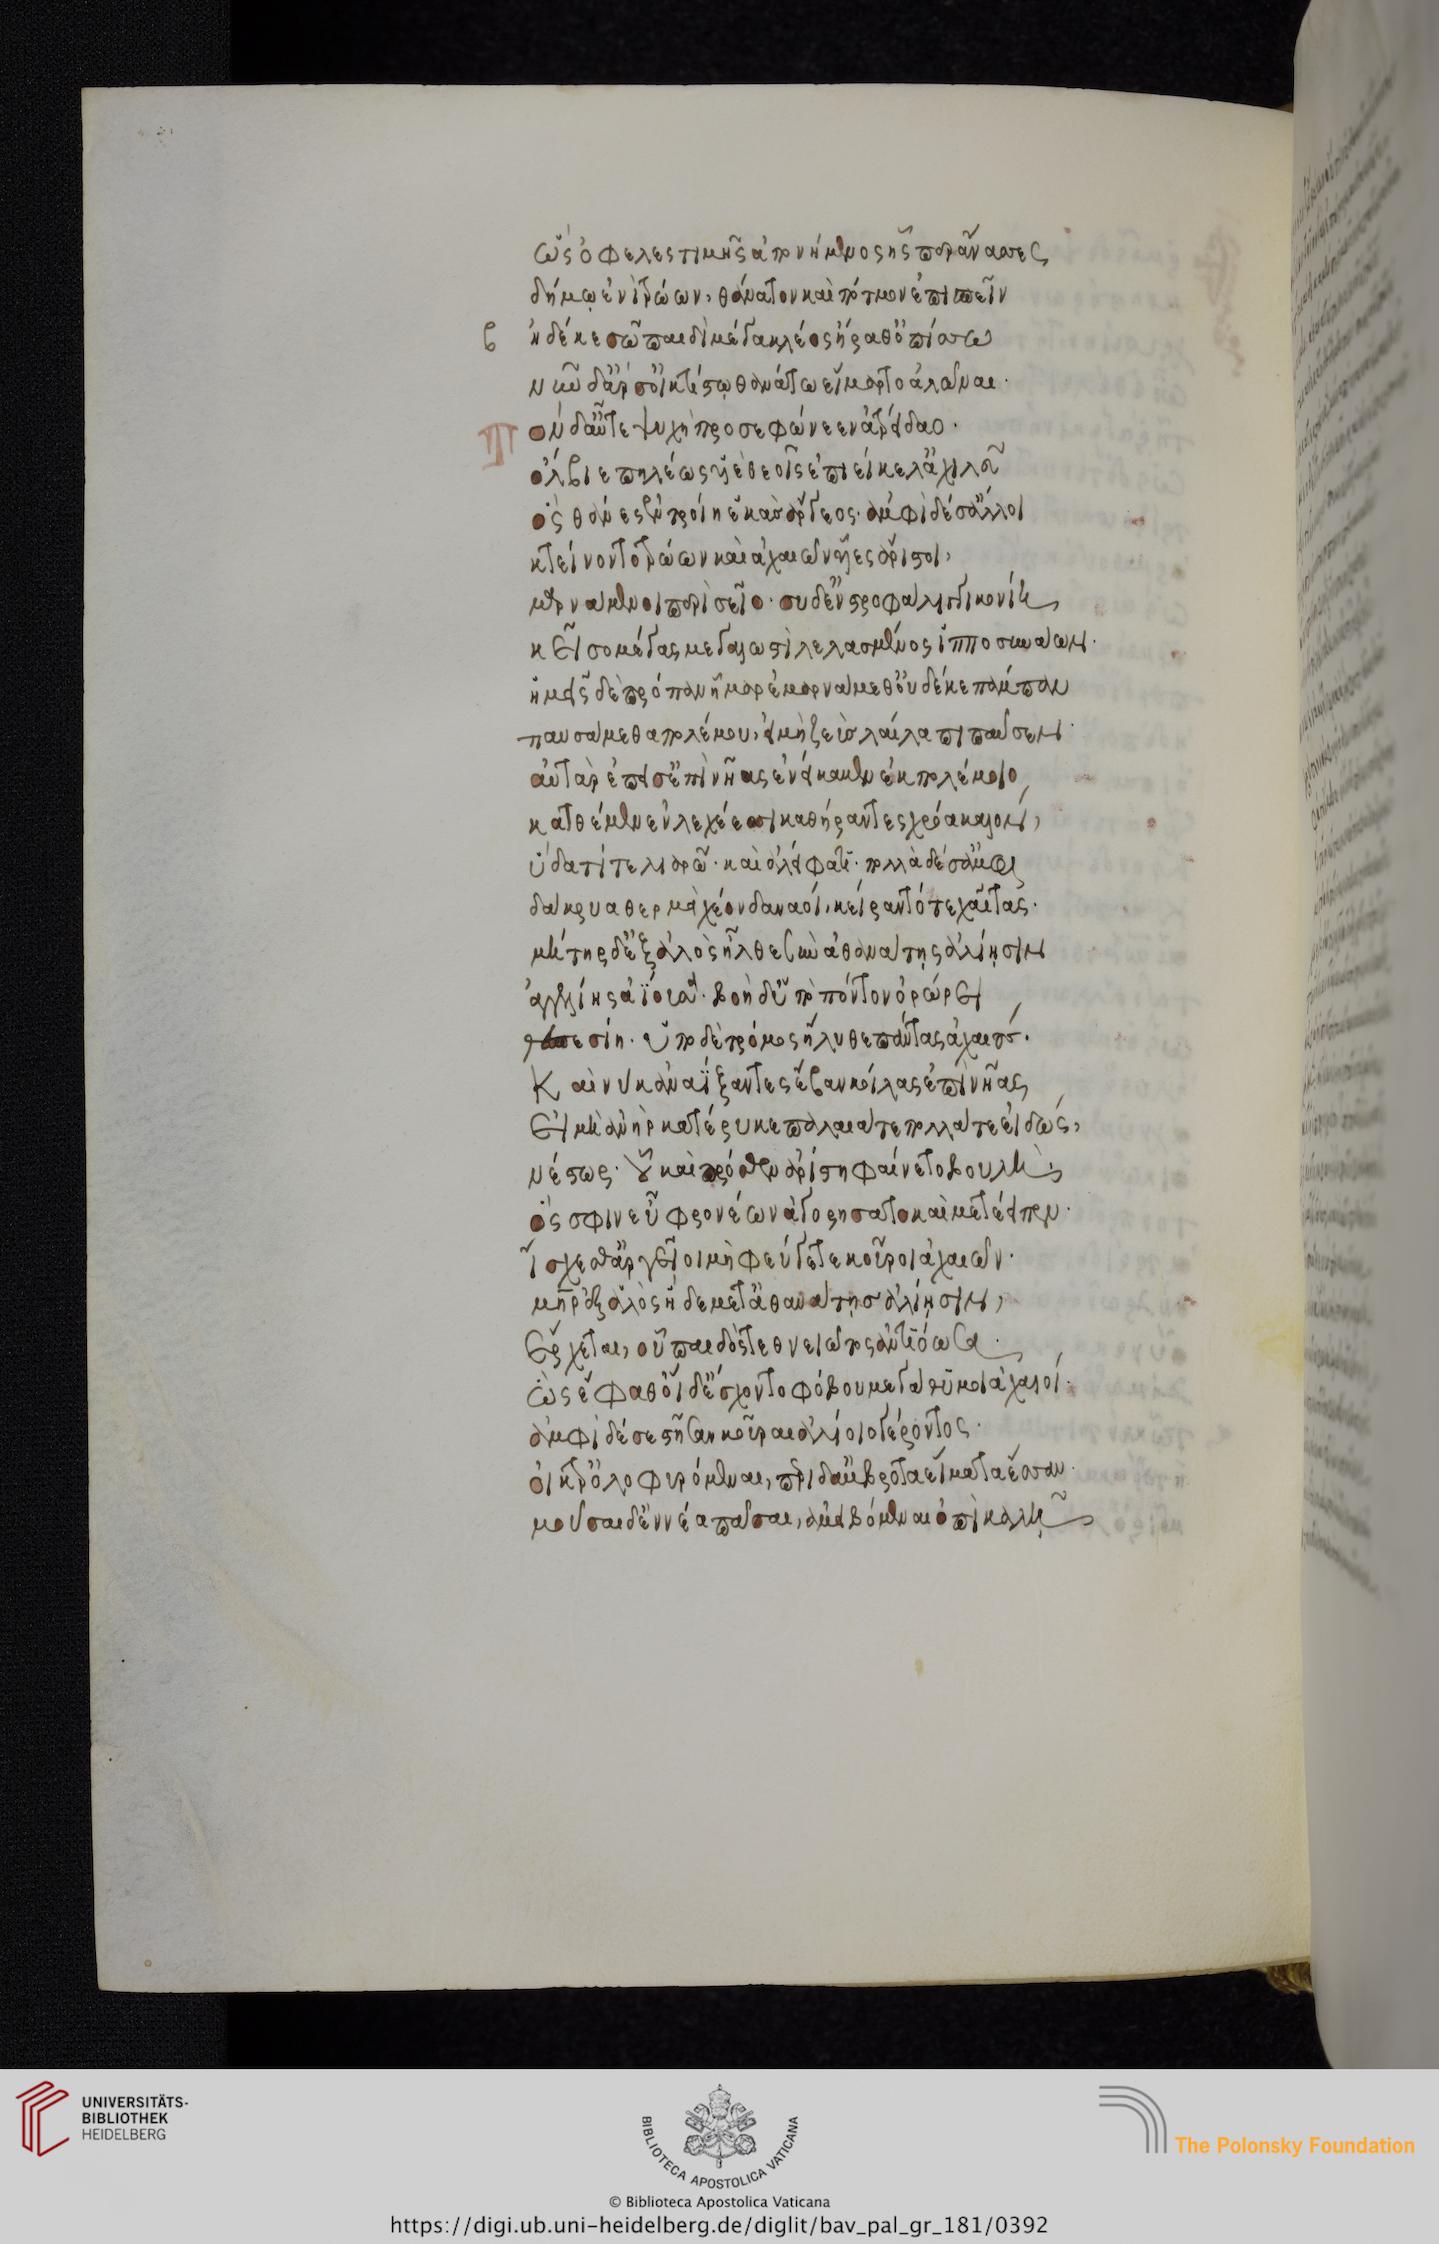 ὡς ὄφελες τιμῆς ἀπονήμενος ἧς περ ἄνασσες
δήμῳ ἐνὶ τρώων, θάνατον καὶ πότμον ἐπισπεῖν
ἠδέ κε σῶ παιδὶ μέγα κλέος ἤραθ' ὀπίσσω
νῦν δ' ἄρ σ' οἰκτίστῳ θανάτω εἵμαρτο ἁλῶναι.
τὸν δ' αὖτε ψυχὴ προσεφώνεεν ἀτρείδαο.
ὄλβιε πηλέως υἱὲ θεοῖς ἐπιείκελ' ἀχιλλεῦ
ὃς θάνες ἐν τροίη ἑκὰς ἄργεος· ἀμφὶ δέ σ' ἄλλοι
κτείνοντο τρώων καὶ ἀχαιῶν υἷες ἄριστοι,
μαρνάμενοι περὶ σεῖο· συ δ' ἐν στροφάλιγγι κονίης
κεῖσο μέγας μεγαλωστὶ λελασμένος ἱπποσυνάων.
ἡμεῖς δὲ πρόπαν ἦμαρ ἐμαρνάμεθ' οὐδέ κε πάμπαν
παυσάμεθα πολέμου, εἰ μὴ ζεὺς λαίλαπι παῦσεν.
αὐτὰρ ἐπεί σ' ἐπὶ νῆας ἐνείκαμεν ἐκ πολέμοιο
κατθέμεν ἐν λεχέεσσι καθήραντες χρόα καλὸν,
ὕδατί τε λιαρῶ· καὶ ἀλείφατι· πολλὰ δέ σ' ἀμφὶς
δάκρυα θερμὰ χέον δαναοί, κείραντό τε χαίτας.
μήτηρ δ' ἐξ ἁλὸς ἦλθε σὺν ἀθανάτῃς ἁλίῃσιν
ἀγγελίης ἀΐουσα· βοὴ δ' ἐπὶ πόντον ὀρώρει
θεσπεσίη· ὑπὸ δὲ τρόμος ἤλυθε πάντας ἀχαιούς.
Καὶ νύ κ' ἀναΐξαντες ἔβαν κοίλας ἐπὶ νῆας
εἰ μὴ ἀνὴρ κατέρυκε παλαιά τε πολλά τε εἰδώς,
νέστωρ· οὗ καὶ πρόσθεν ἀρίστη φαίνετο βουλή·
ὅς σφιν ἐϋφρονέων ἀγορήσατο καὶ μετέειπεν.
ἴσχεσθ' ἀργεῖοι μὴ φεύγετε κοῦροι ἀχαιῶν.
μήτηρ ἐξ ἁλὸς ἥδε μετ' ἀθανάτῃσ ἁλίῃσιν,
ἔρχεται, οὗ παιδὸς τεθνειῶτος ἀντιόωσα.
ὣς ἔφαθ' οἱ δ' ἔσχοντο φόβου μεγάθυμοι ἀχαιοί.
ἀμφὶ δέ σ' ἔστησαν κοῦραι ἁλίοιο γέροντος.
οἴκτρ' ὀλοφυρόμεναι, περὶ δ' ἄμβροτα εἵματα ἕσσαν.
μοῦσαι δ' ἐννέα πᾶσαι, ἀμειβόμεναι ὀπὶ καλῇ
UNIVERSITÄTS-
BIBLIOTHEK
HEIDELBERG
BIBLIOTECA APOSTOLICA VATICANA
© Biblioteca Apostolica Vaticana
The Polonsky Foundation
https://digi.ub.uni-heidelberg.de/diglit/bav_pal_gr_181/0392